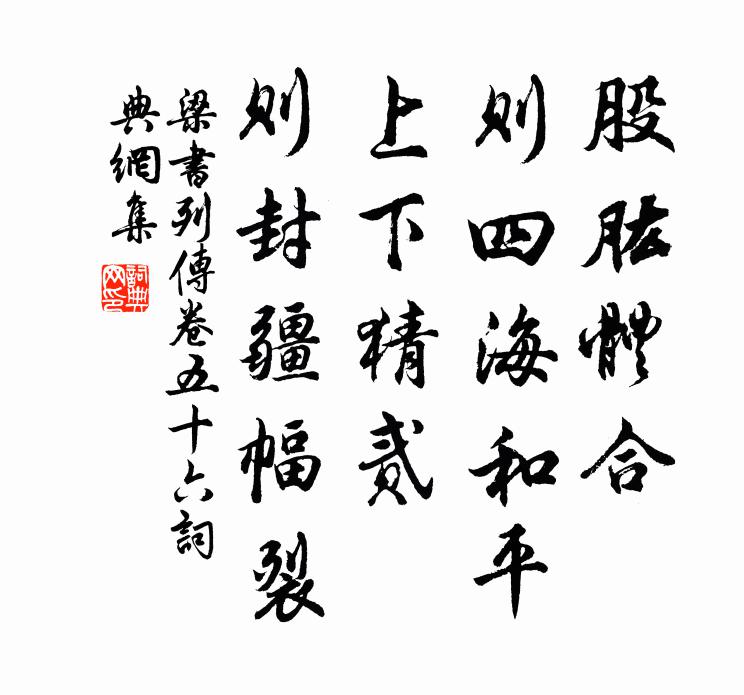 股肱體合
則四海和平
上下猜貳
則封疆幅裂
梁書列傳卷五十六詞
典網集
詞典網印